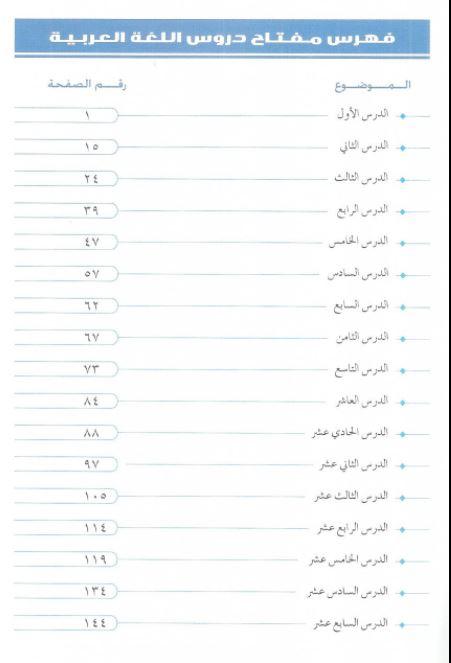 فهرس مفتاح دروس اللغة العربية
الموضوع رقم الصفحة
الدرس الأول ١
الدرس الثاني ١٥
الدرس الثالث ٢٤
الدرس الرابع ٣٩
الدرس الخامس ٤٧
الدرس السادس ٥٧
الدرس السابع ٦٢
الدرس الثامن ٦٧
الدرس التاسع ٧٣
الدرس العاشر ٨٤
الدرس الحادي عشر ٨٨
الدرس الثاني عشر ٩٧
الدرس الثالث عشر ١٠٥
الدرس الرابع عشر ١١٤
الدرس الخامس عشر ١١٩
الدرس السادس عشر ١٣٤
الدرس السابع عشر ١٤٤